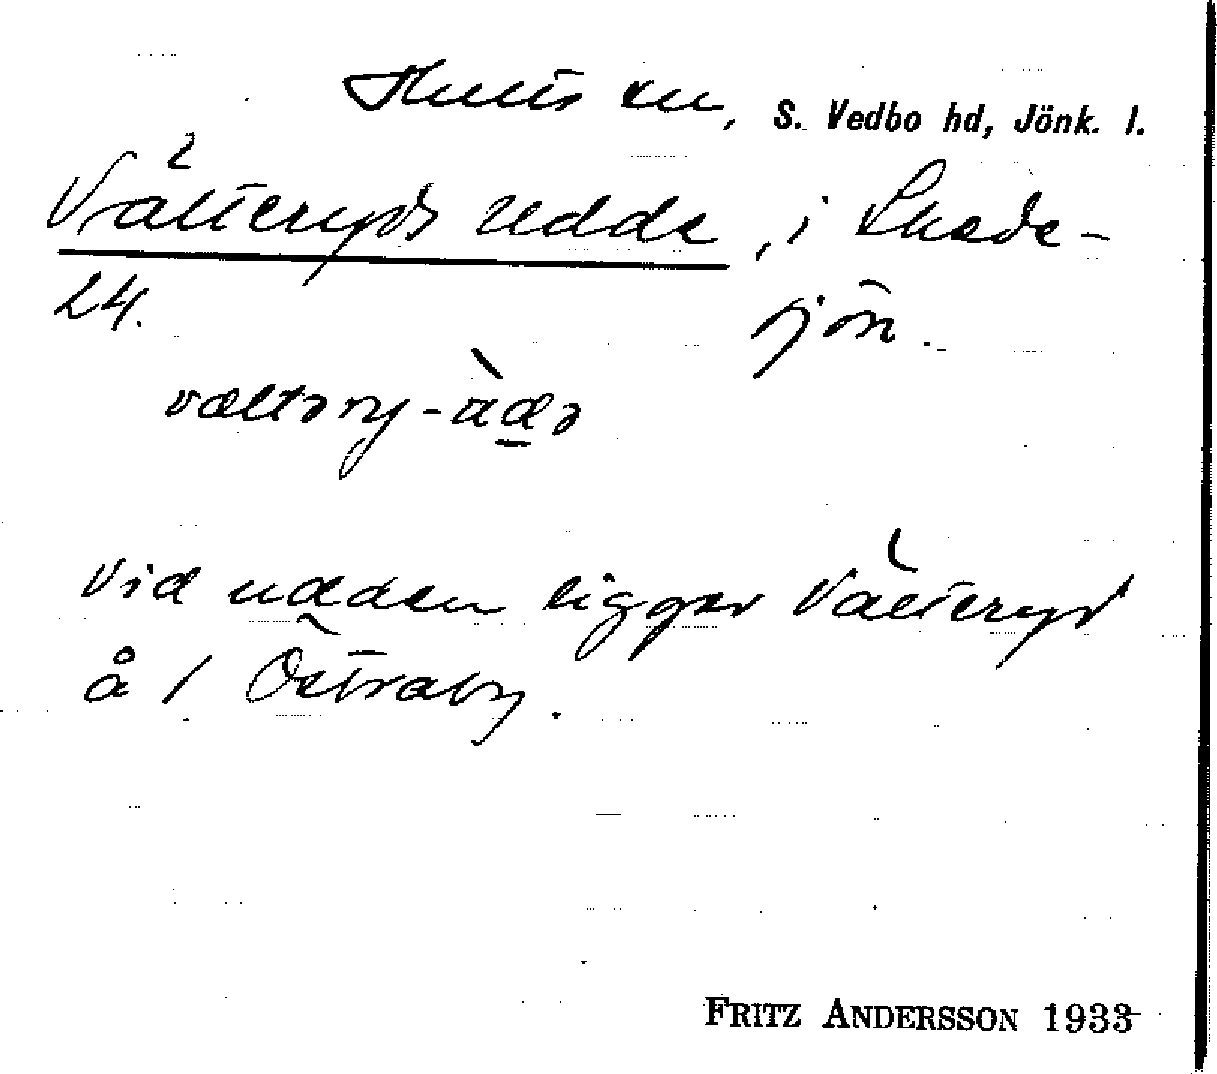 Hults sn, S. Vedbo hd, Jönk. l.
Välteryds udde, i Skede-
24. sjön.
væltəry-ùdə
Vid udden ligger Välteryd
å 1 Östraby.
FRITZ ANDERSSON 1933